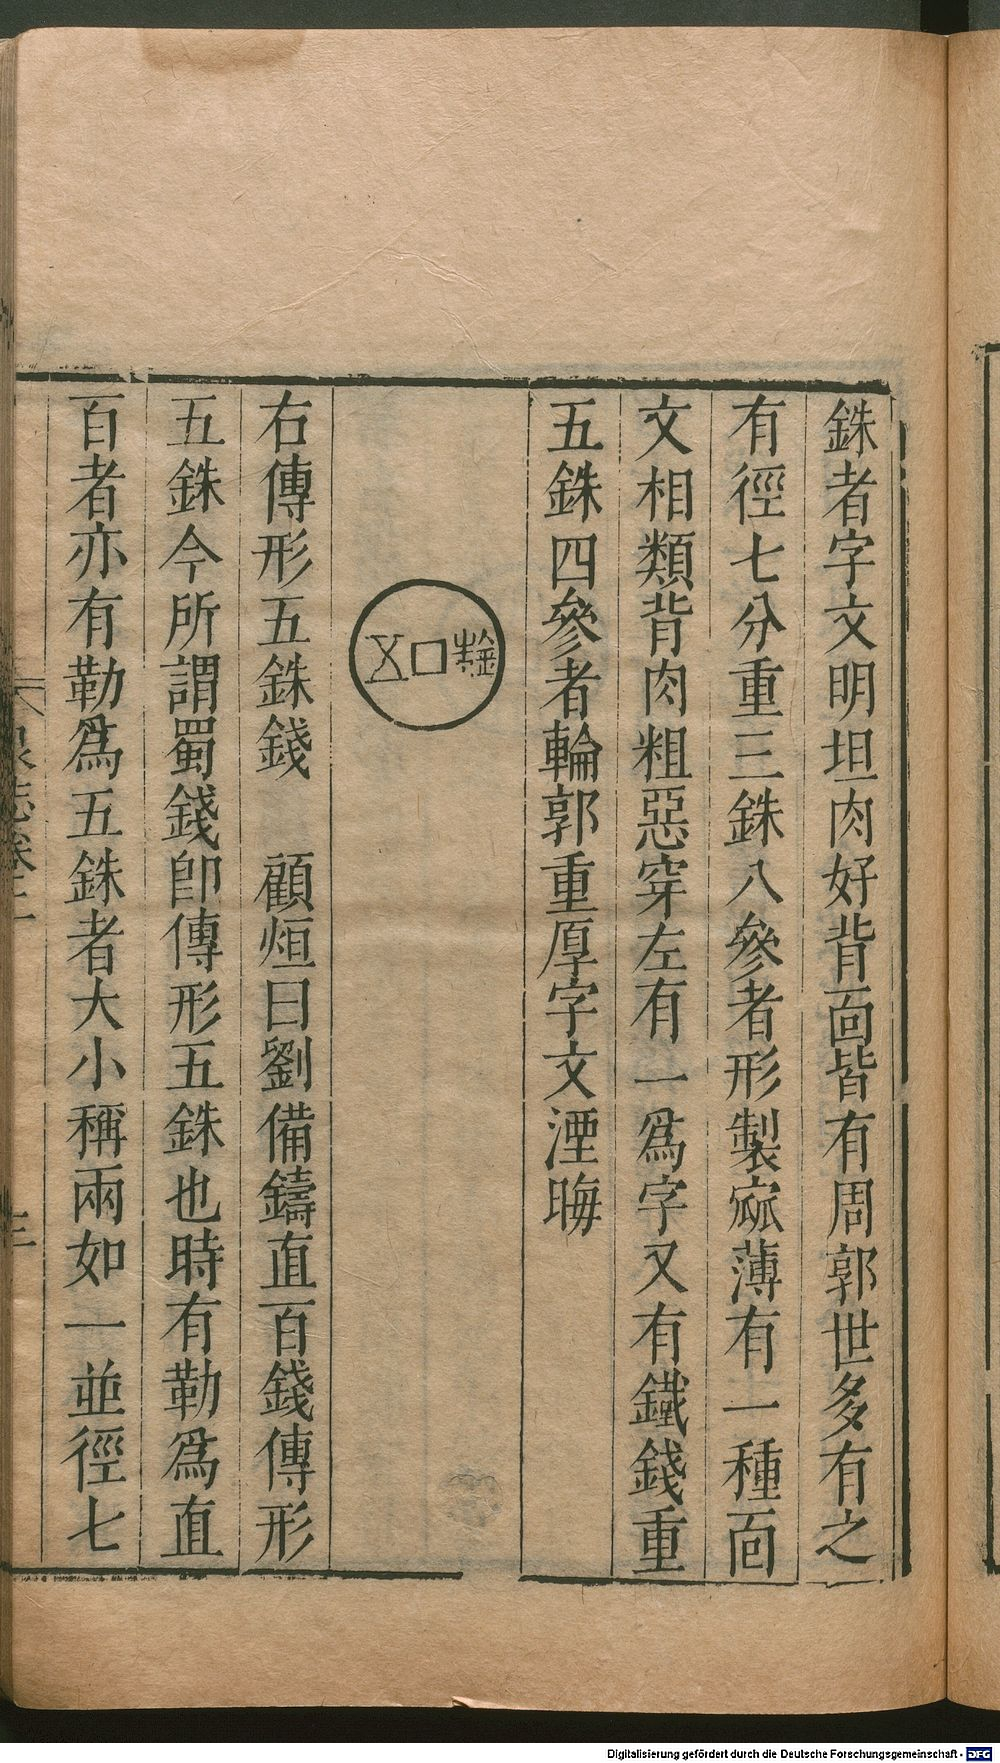 銖者字文明坦肉好背面皆有周郭世多有之
有徑七分重三銖八參者形製寙薄有一種面
文相類背肉粗惡穿左有一爲字又有鐵錢重
五銖四參者輪郭重厚字文湮晦
五銖
右傳形五銖錢 顧烜曰劉備鑄直百錢傳形
五銖今所謂蜀錢即傳形五銖也時有勒爲直
百者亦有勒爲五銖者大小稱兩如一並徑七
泉志卷三
三
Digitalisierung gefördert durch die Deutsche Forschungsgemeinschaft - DFG